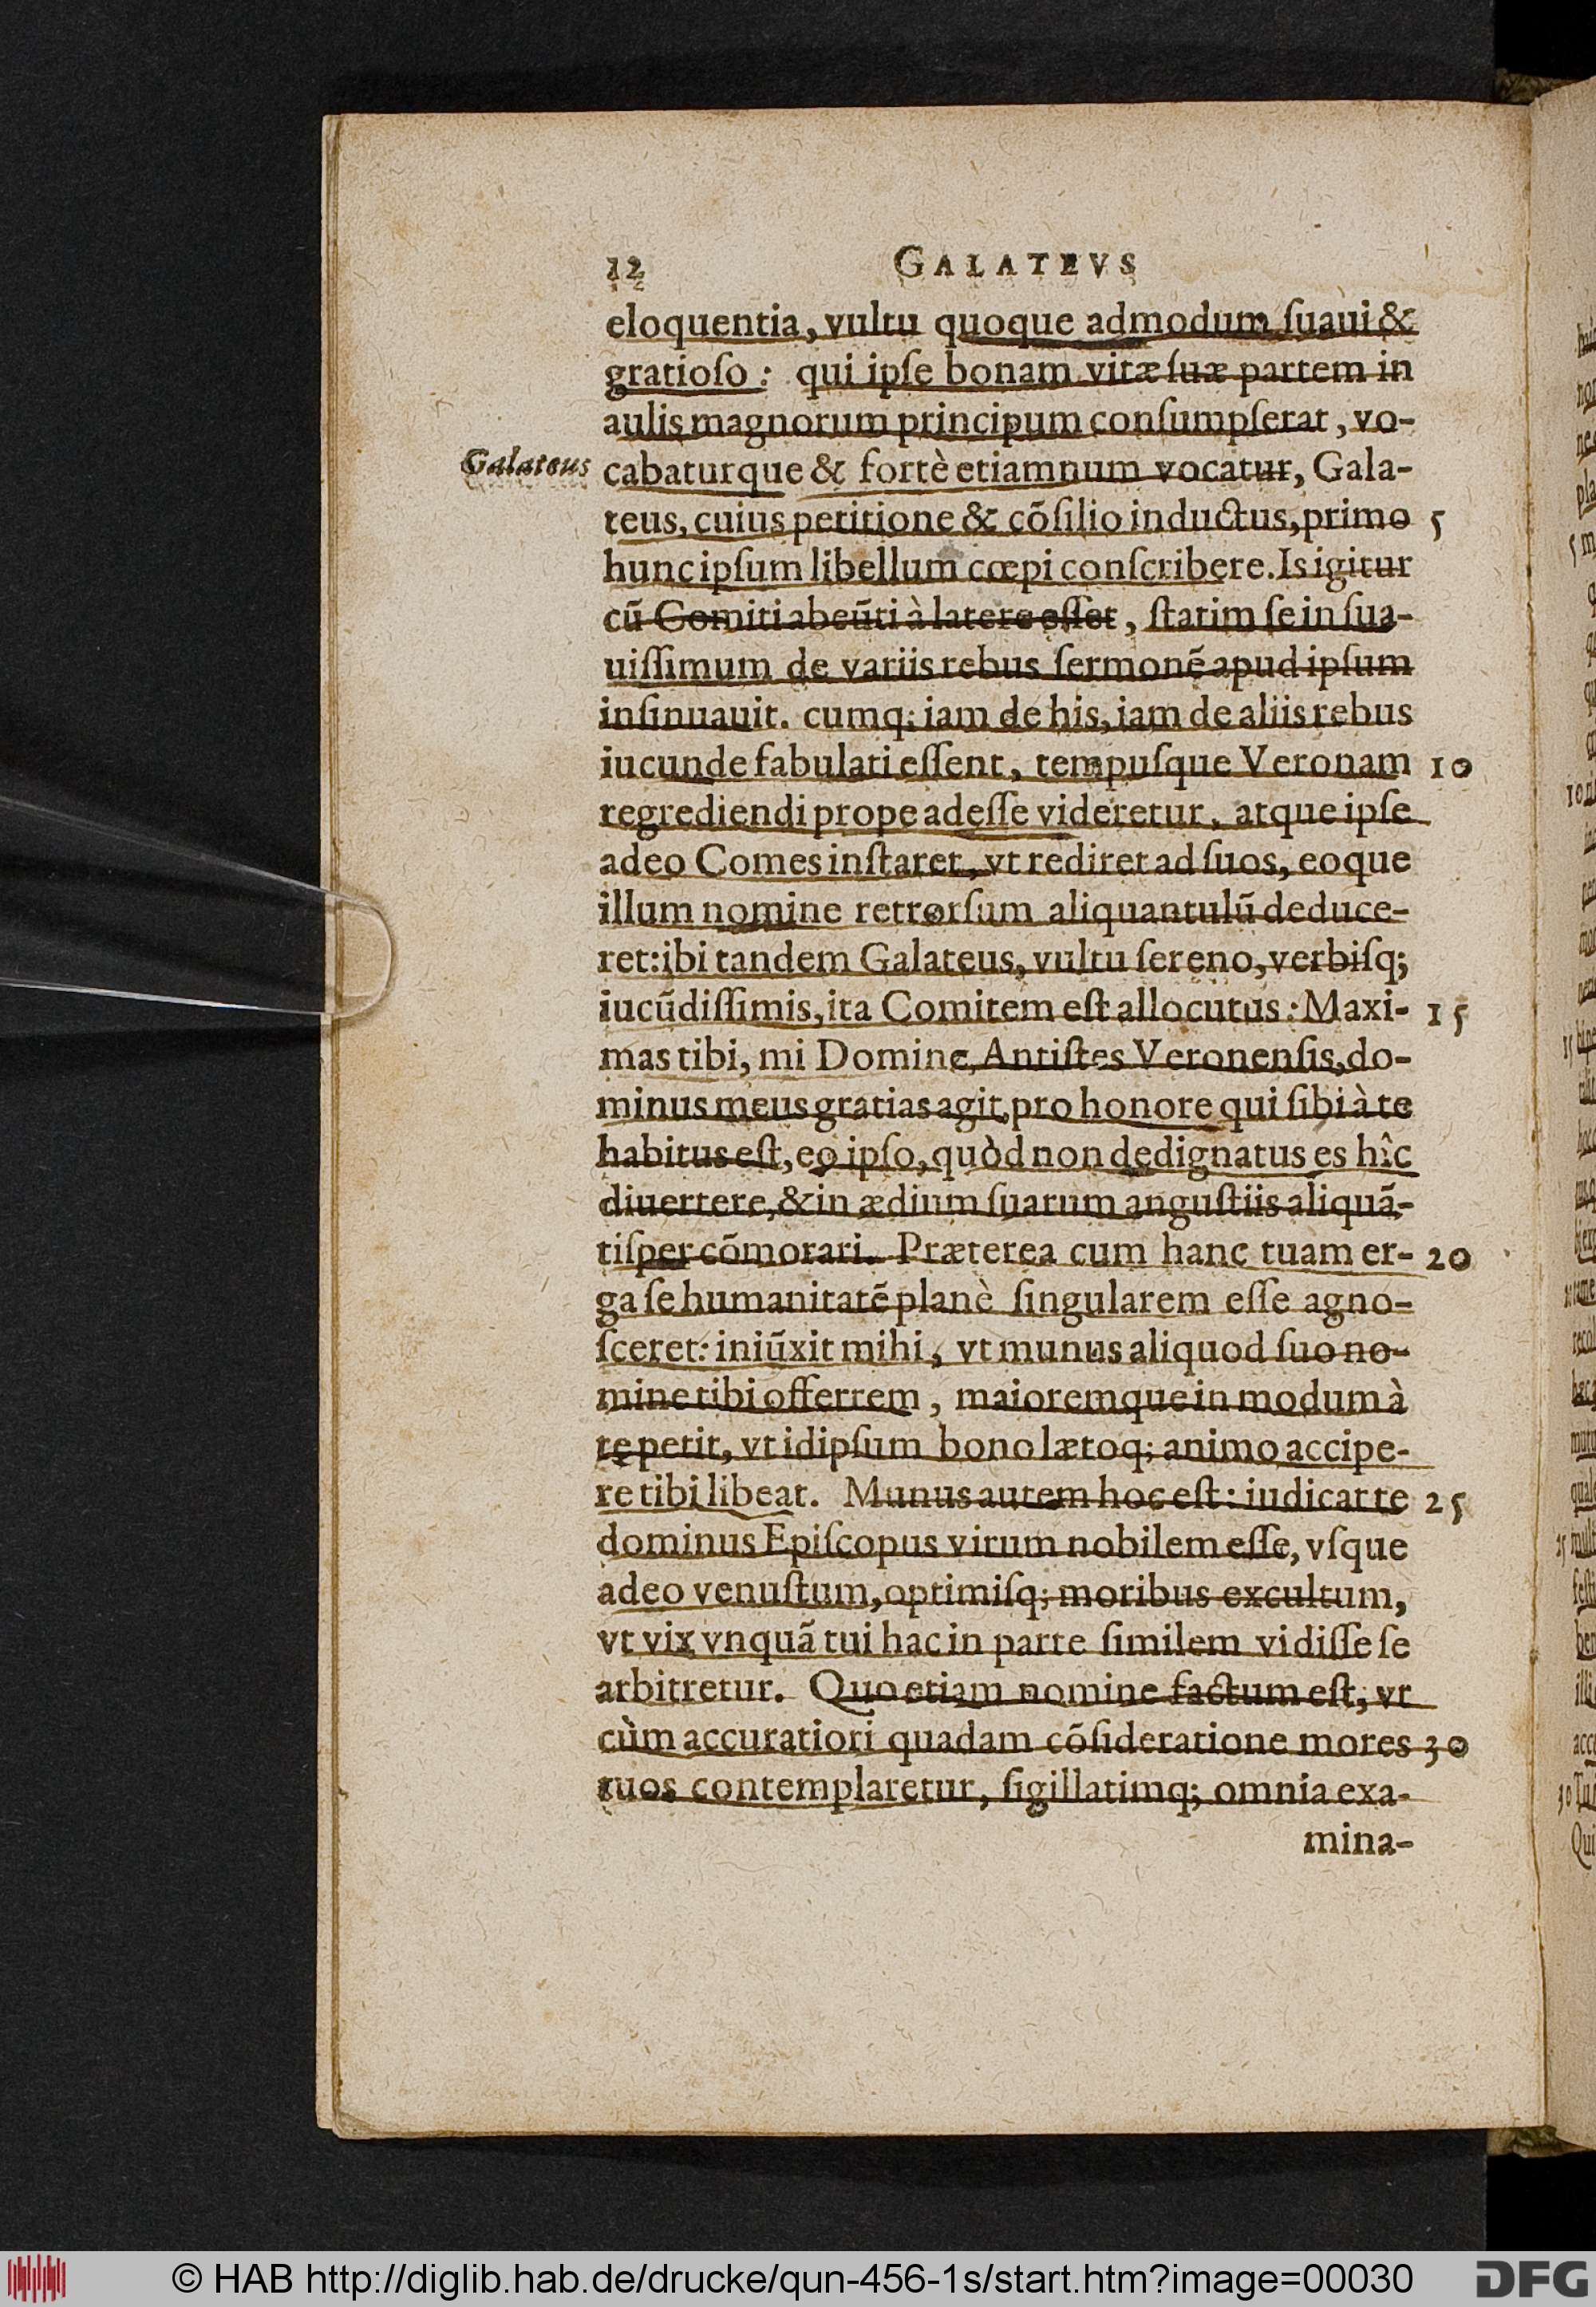 12 GALATEVS
eloquentia, vultu quoque admodum ſuaui &
gratioſo: qui ipſe bonam vitæ ſuæ partem in
aulis magnorum principum conſumpſerat, vo-
Galateus cabaturque & fortè etiamnum vocatur, Gala-
teus, cuius petitione & cõſilio inductus, primo 5
hunc ipſum libellum cœpi conſcribere. Is igitur
cũ Comiti abeũti à latere eſſet, ſtatim ſe in ſua-
uiſſimum de variis rebus ſermonẽ apud ipſum
inſinuauit. cumq; iam de his, iam de aliis rebus
iucunde fabulati eſſent, tempuſque Veronam 10
regrediendi prope adeſſe videretur, atque ipſe
adeo Comes inſtaret, vt rediret ad ſuos, eoque
illum nomine retrorſum aliquantulũ deduce-
ret: ibi tandem Galateus, vultu ſereno, verbiſq;
iucũdiſſimis, ita Comitem eſt allocutus: Maxi- 15
mas tibi, mi Domine, Antiſtes Veronenſis, do-
minus meus gratias agit, pro honore qui ſibi à te
habitus eſt, eo ipſo, quòd non dedignatus es hîc
diuertere, & in ædium ſuarum anguſtiis aliquã-
tiſper cõmorari. Præterea cum hanc tuam er- 20
ga ſe humanitatẽ planè ſingularem eſſe agno-
ſceret: iniũxit mihi, vt munus aliquod ſuo no-
mine tibi offerrem, maioremque in modum à
te petit, vt id ipſum bono lætoq; animo accipe-
re tibi libeat. Munus autem hoc eſt: iudicat te 25
dominus Epiſcopus virum nobilem eſſe, vſque
adeo venuſtum, optimiſq; moribus excultum,
vt vix vnquã tui hac in parte ſimilem vidiſſe ſe
arbitretur. Quo etiam nomine factum eſt, vt
cùm accuratiori quadam cõſideratione mores 30
tuos contemplaretur, ſigillatimq; omnia exa-
mina-
© HAB http://diglib.hab.de/drucke/qun-456-1s/start.htm?image=00030
DFG